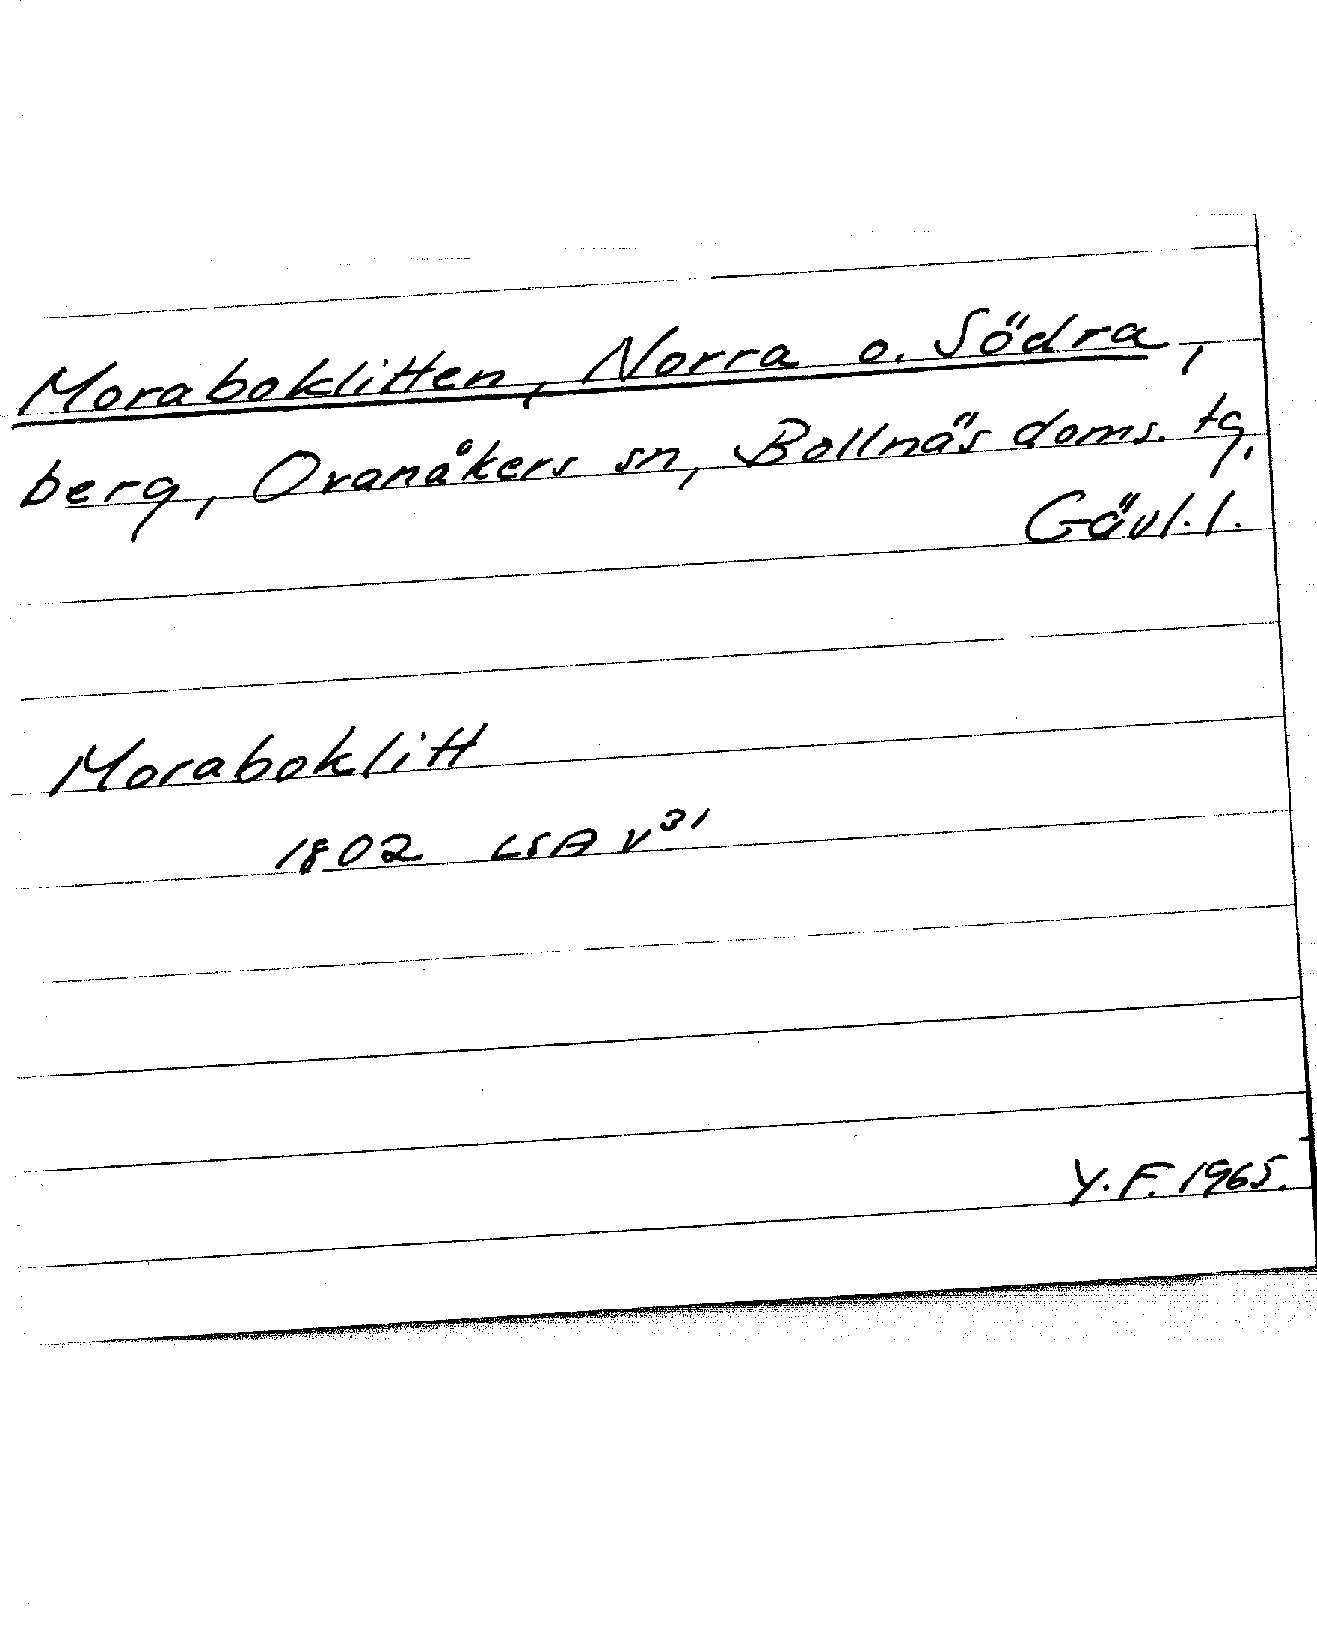 Moraboklitten, Norra o. Södra,
berg, Ovanåkers sn, Bollnäs doms. tg.
Gävl. l.
Moraboklitt
1802 LSA V³¹
Y. F. 1965.